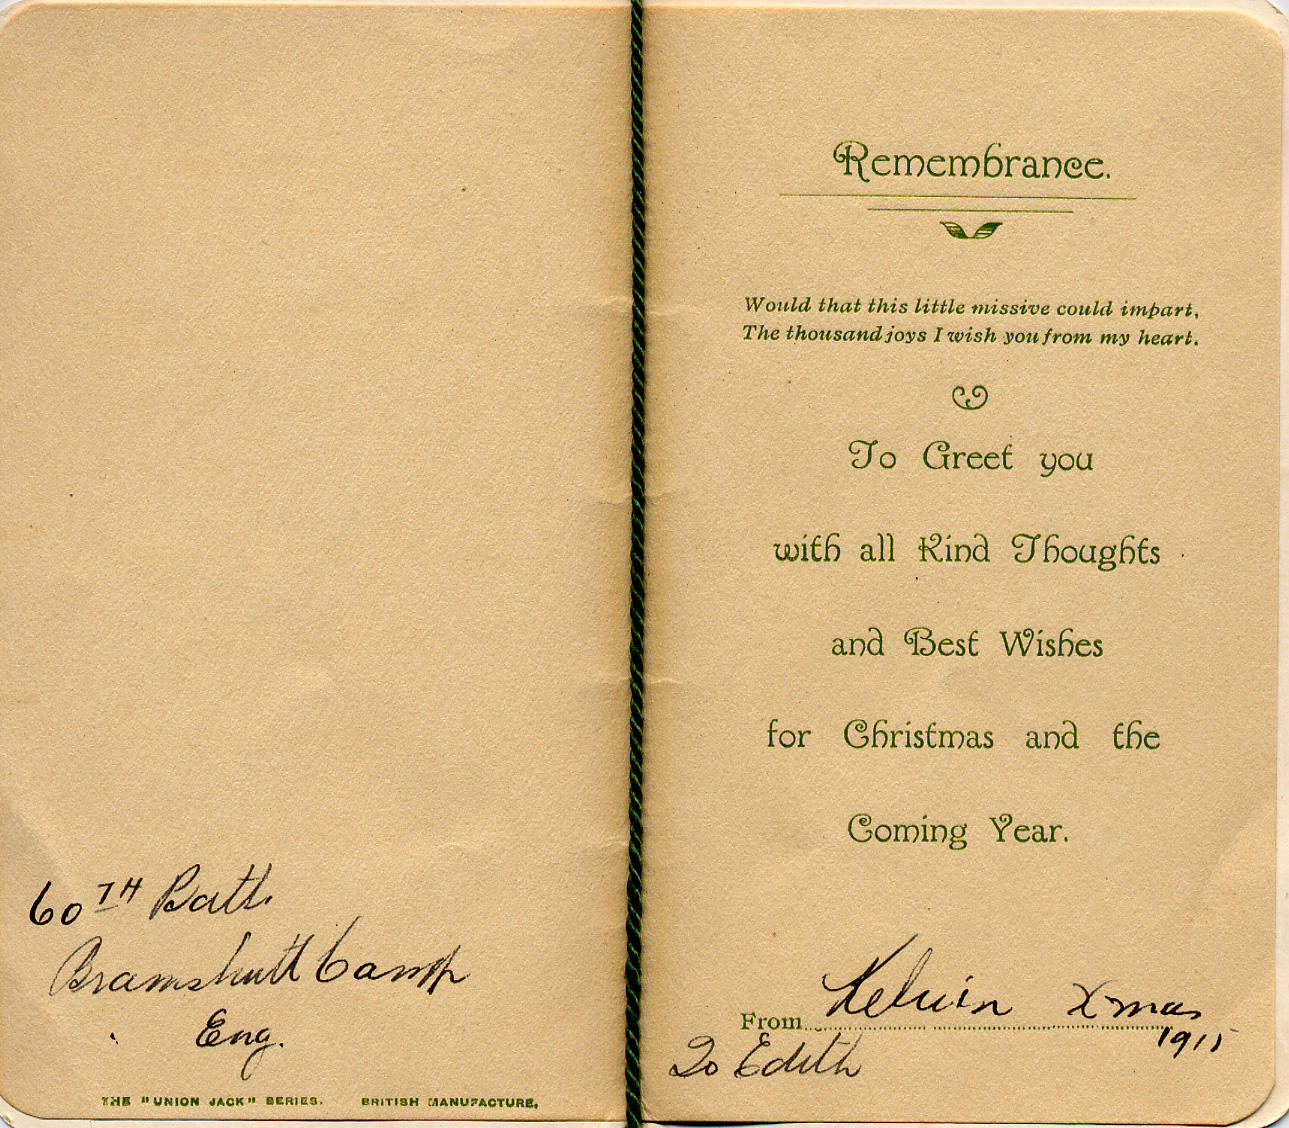 60TH Batt.
Bramshutt Camp
Eng.
THE "UNION JACK" SERIES. BRITISH MANUFACTURE,
Remembrance.
Would that this little missive could impart,
The thousand joys I wish you from my heart.
To Greet you
with all Kind Thoughts
and Best Wishes
for Christmas and the
Coming Year.
From Kelvin Xmas
1915
To Edith